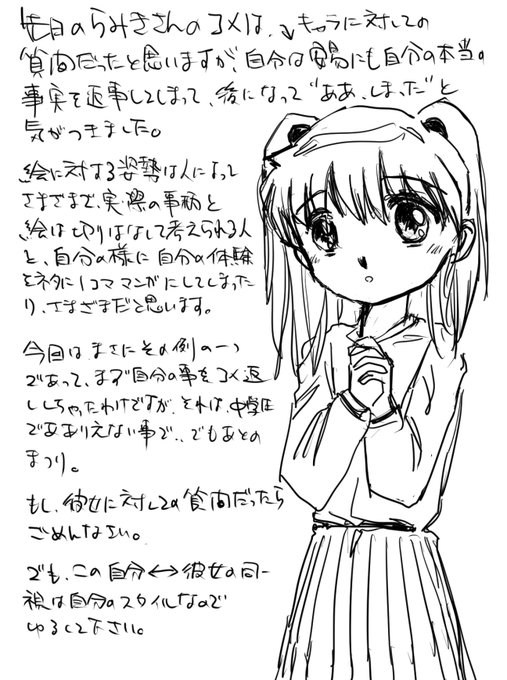 先日のらみきさんのコメは、↓キャラに対しての
質問だったと思いますが、自分は安易にも自分の本当の
事実を返事してしまって、後になって"ああ、しまった"と
気がつきました。
絵に対する姿勢は人によって
さまざまで、実際の事柄と
絵は切りはなして考えられる人
と、自分の様に自分の体験
をネタに1コママンガにしてしまった
り、さまざまだと思います。
今回はまさにその例の一つ
であって、まず自分の事をコメ返
ししちゃったわけですが、それは、中学生
でありえない事で、でもあとの
まつり。
もし、彼女に対しての質問だったら
ごめんなさい。
でも、この自分↔彼女の同一
視は自分のスタイルなので
ゆるして下さい。